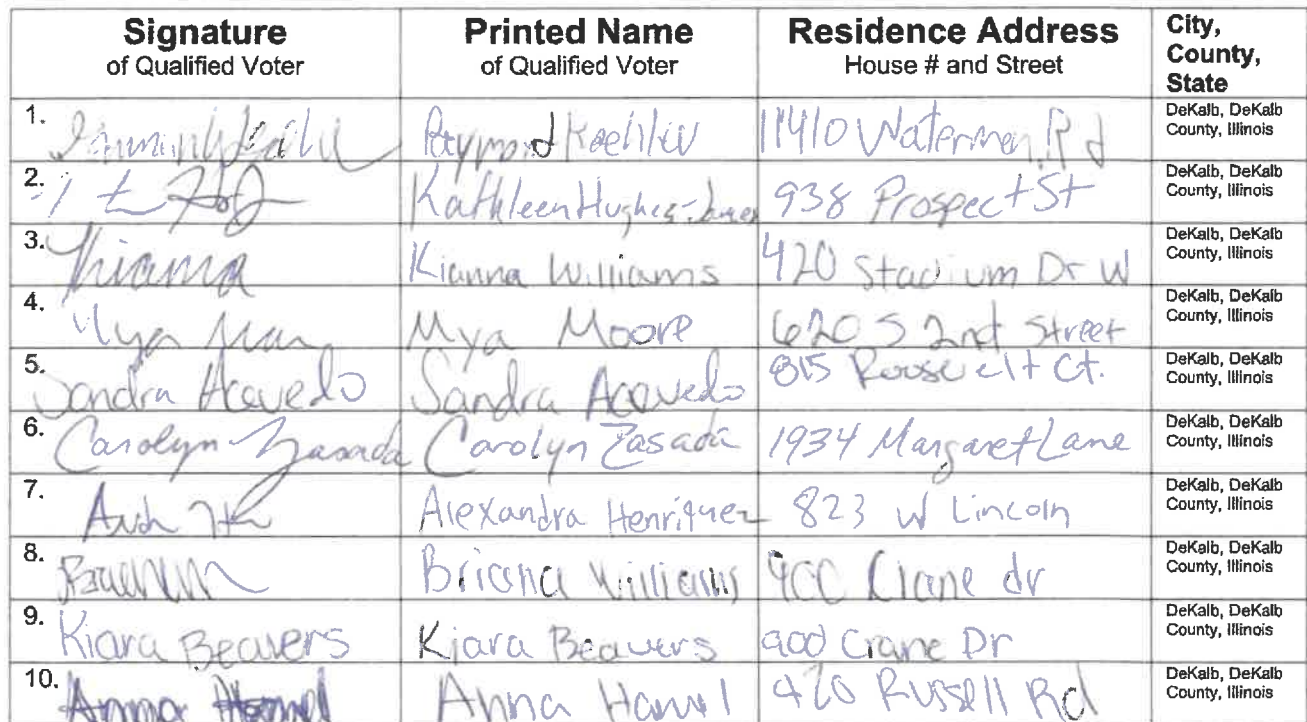 Signature Printed Name Residence Address City,
of Qualified Voter of Qualified Voter House # and Street County,
State
1. Raymond 11410 Waterman Rd DeKalb, DeKalb
County, Illinois
2. Kathleen Hughes-Jones 938 Prospect St DeKalb, DeKalb
County, Illinois
3. Kianna Kianna Williams 420 Stadium Dr W DeKalb, DeKalb
County, Illinois
4. Mya Mya Moore 620 S 2nd Street DeKalb, DeKalb
County, Illinois
5. Sandra Acevedo Sandra Acevedo 815 Roosevelt Ct. DeKalb, DeKalb
County, Illinois
6. Carolyn Zasada Carolyn Zasada 1934 Margaret Lane DeKalb, DeKalb
County, Illinois
7. Alexandra Henriquez 823 W Lincoln DeKalb, DeKalb
County, Illinois
8. Briana Williams 900 Crane dr DeKalb, DeKalb
County, Illinois
9. Kiara Beavers Kiara Beavers 900 Crane Dr DeKalb, DeKalb
County, Illinois
10. Anna Anna 420 Russell Rd DeKalb, DeKalb
County, Illinois